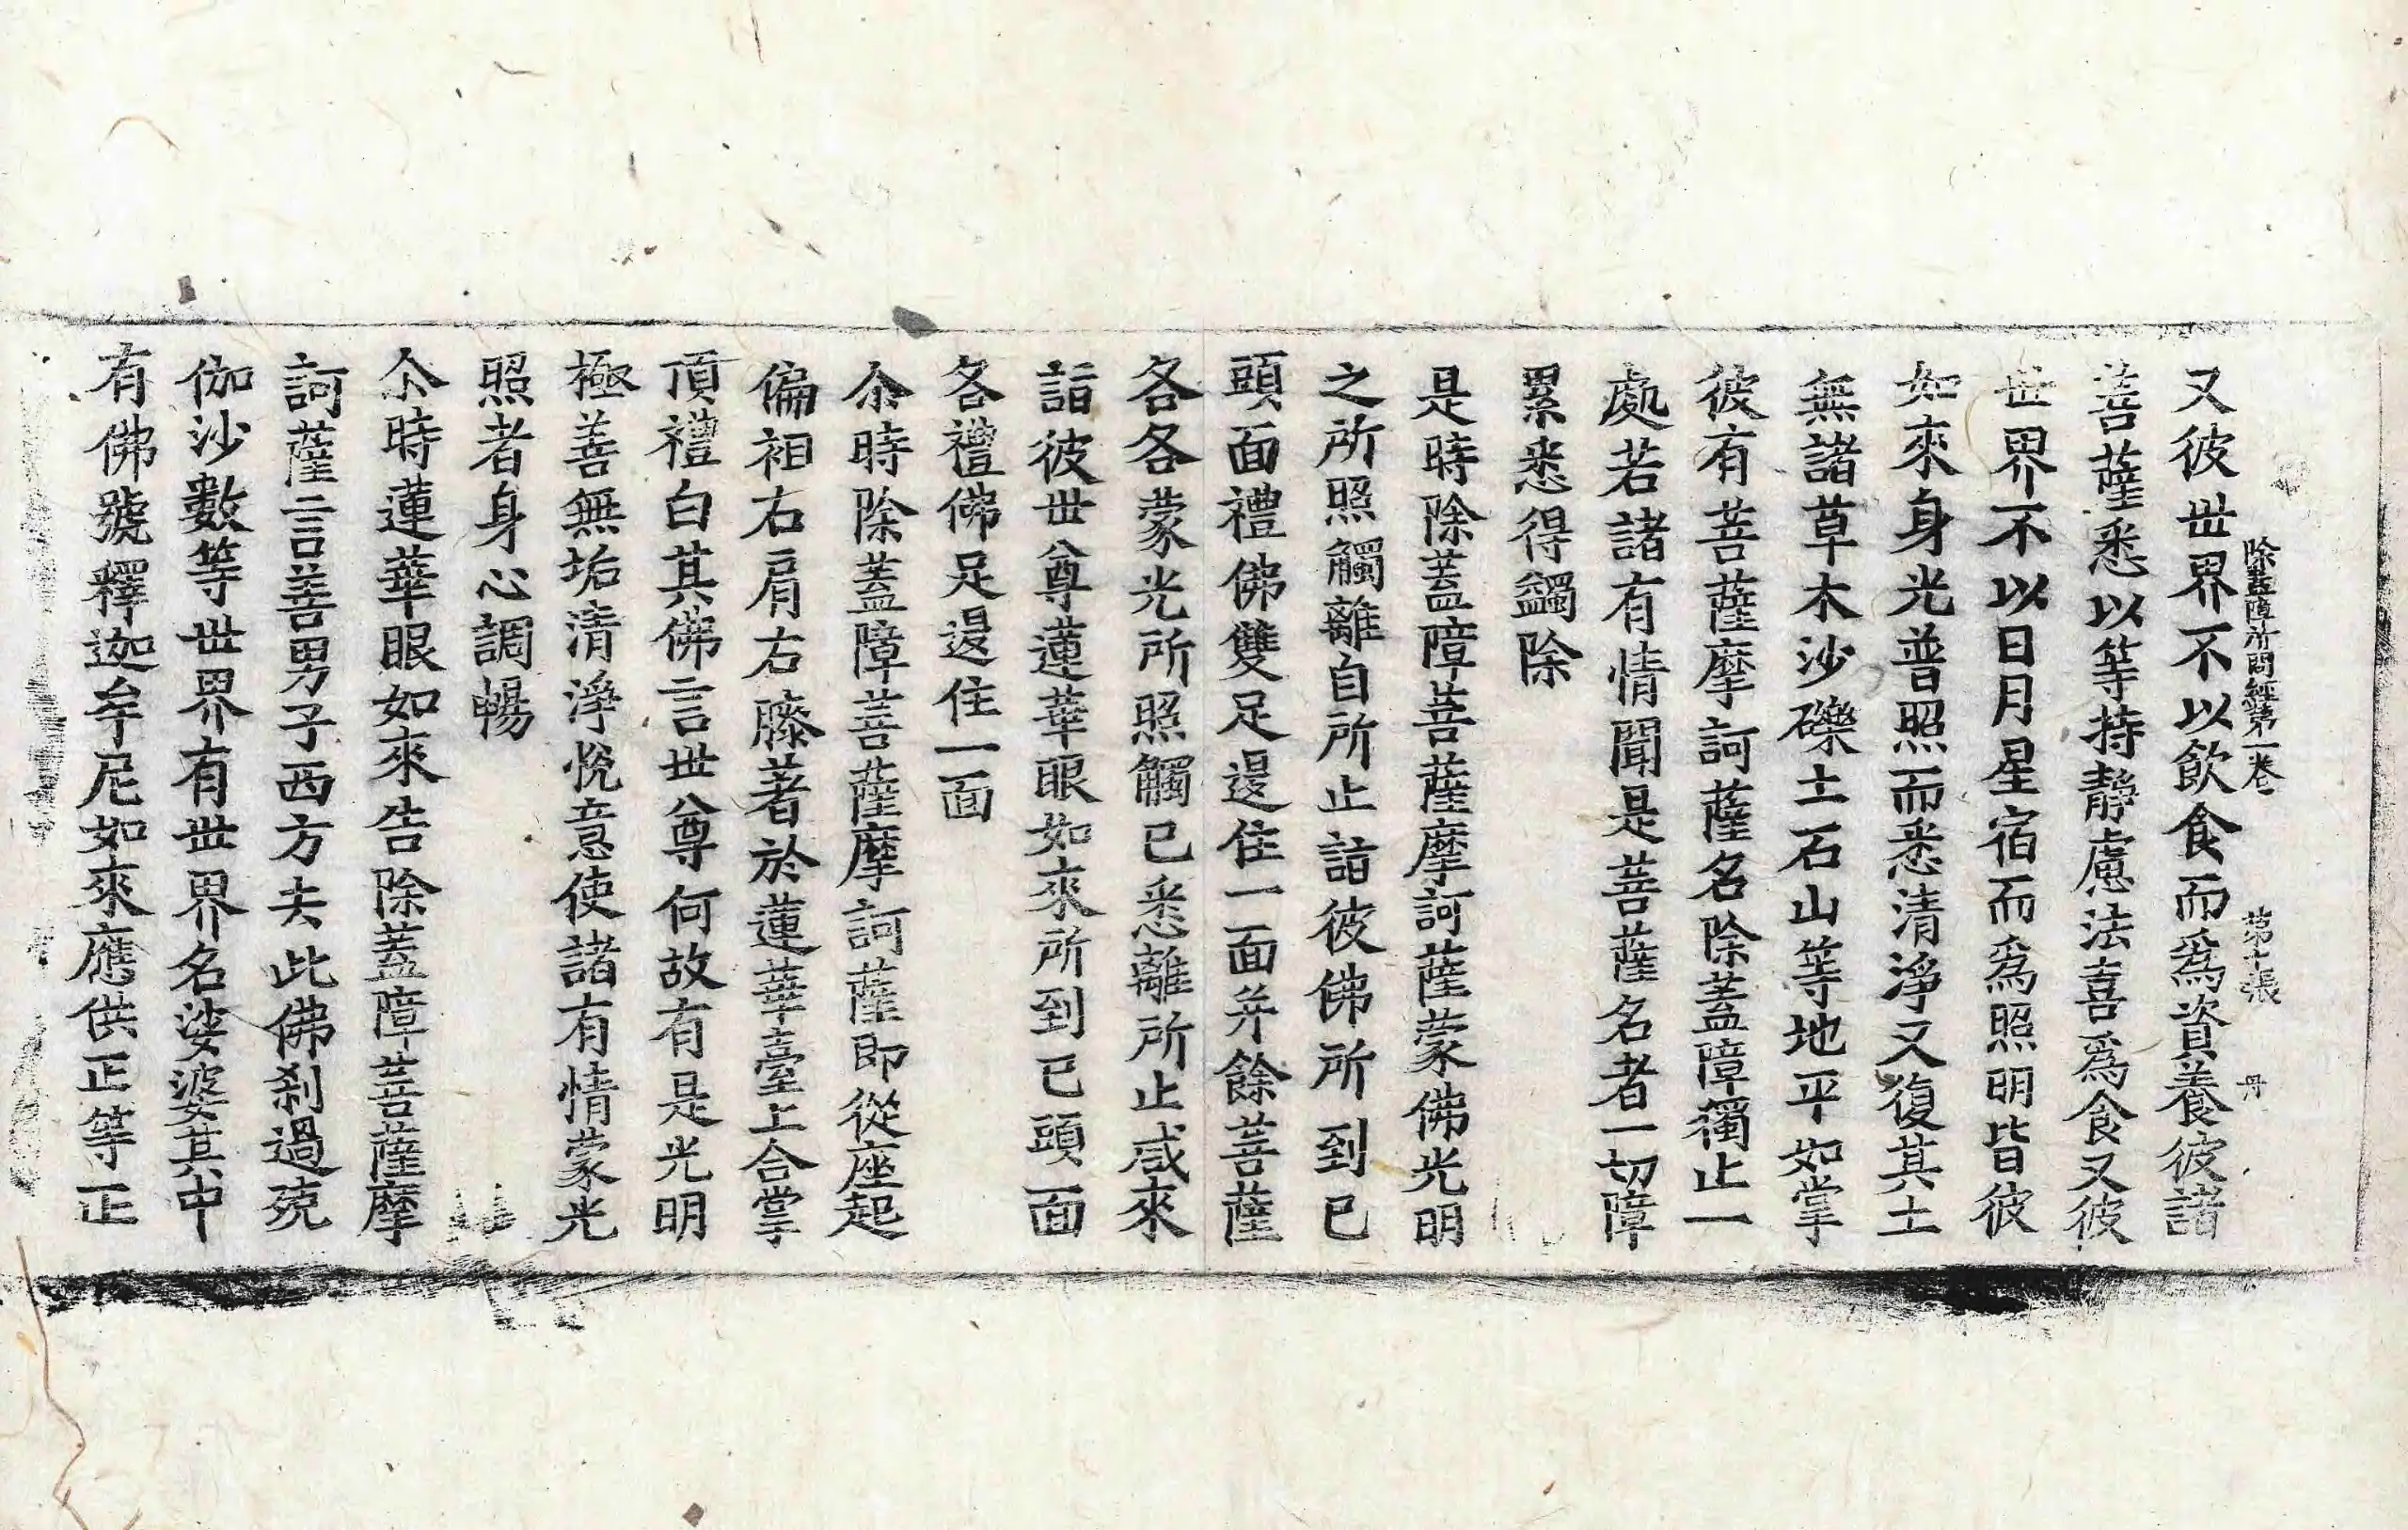 除蓋障所問經第一卷　第十張　丹
又彼世界不以飮食而爲資養彼諸
菩薩悉以等持靜慮法喜爲食又彼
世界不以日月星宿而爲照明皆彼
如來身光普照而悉清淨又復其土
無諸草木沙礫土石山等地平如掌
彼有菩薩摩訶薩名除蓋障獨止一
處若諸有情聞是菩薩名者一切障
累悉得蠲除
是時除蓋障菩薩摩訶薩蒙佛光明
之所照觸離自所止詣彼佛所到已
頭面禮佛雙足退住一面并餘菩薩
各各蒙光所照觸已悉離所止咸來
詣彼世尊蓮華眼如來所到已頭面
各禮佛足退住一面
尒時除蓋障菩薩摩訶薩即從座起
偏袒右肩右膝著於蓮華臺上合掌
頂禮白其佛言世尊何故有是光明
極善無垢清淨悅意使諸有情蒙光
照者身心調暢
尒時蓮華眼如來告除蓋障菩薩摩
訶薩言善男子西方去此佛刹過殑
伽沙數等世界有世界名娑婆其中
有佛號釋迦牟尼如來應供正等正